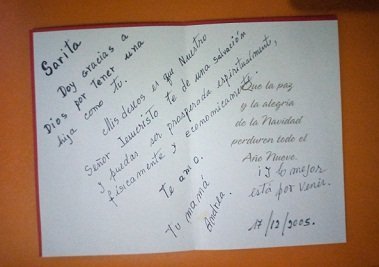 Sarita
Doy gracias a
Dios por tener una
hija como tu.
Mis deseos es que Nuestro
Señor Jesucristo te de una salvación
y puedas ser prosperada espiritualmente,
físicamente y económicamente.
Te amo.
Tu mamá
Andrea.
Que la paz
y la alegría
de la Navidad
perduren todo el
Año Nuevo.
¡y lo mejor
está por venir.
17/12/2005.